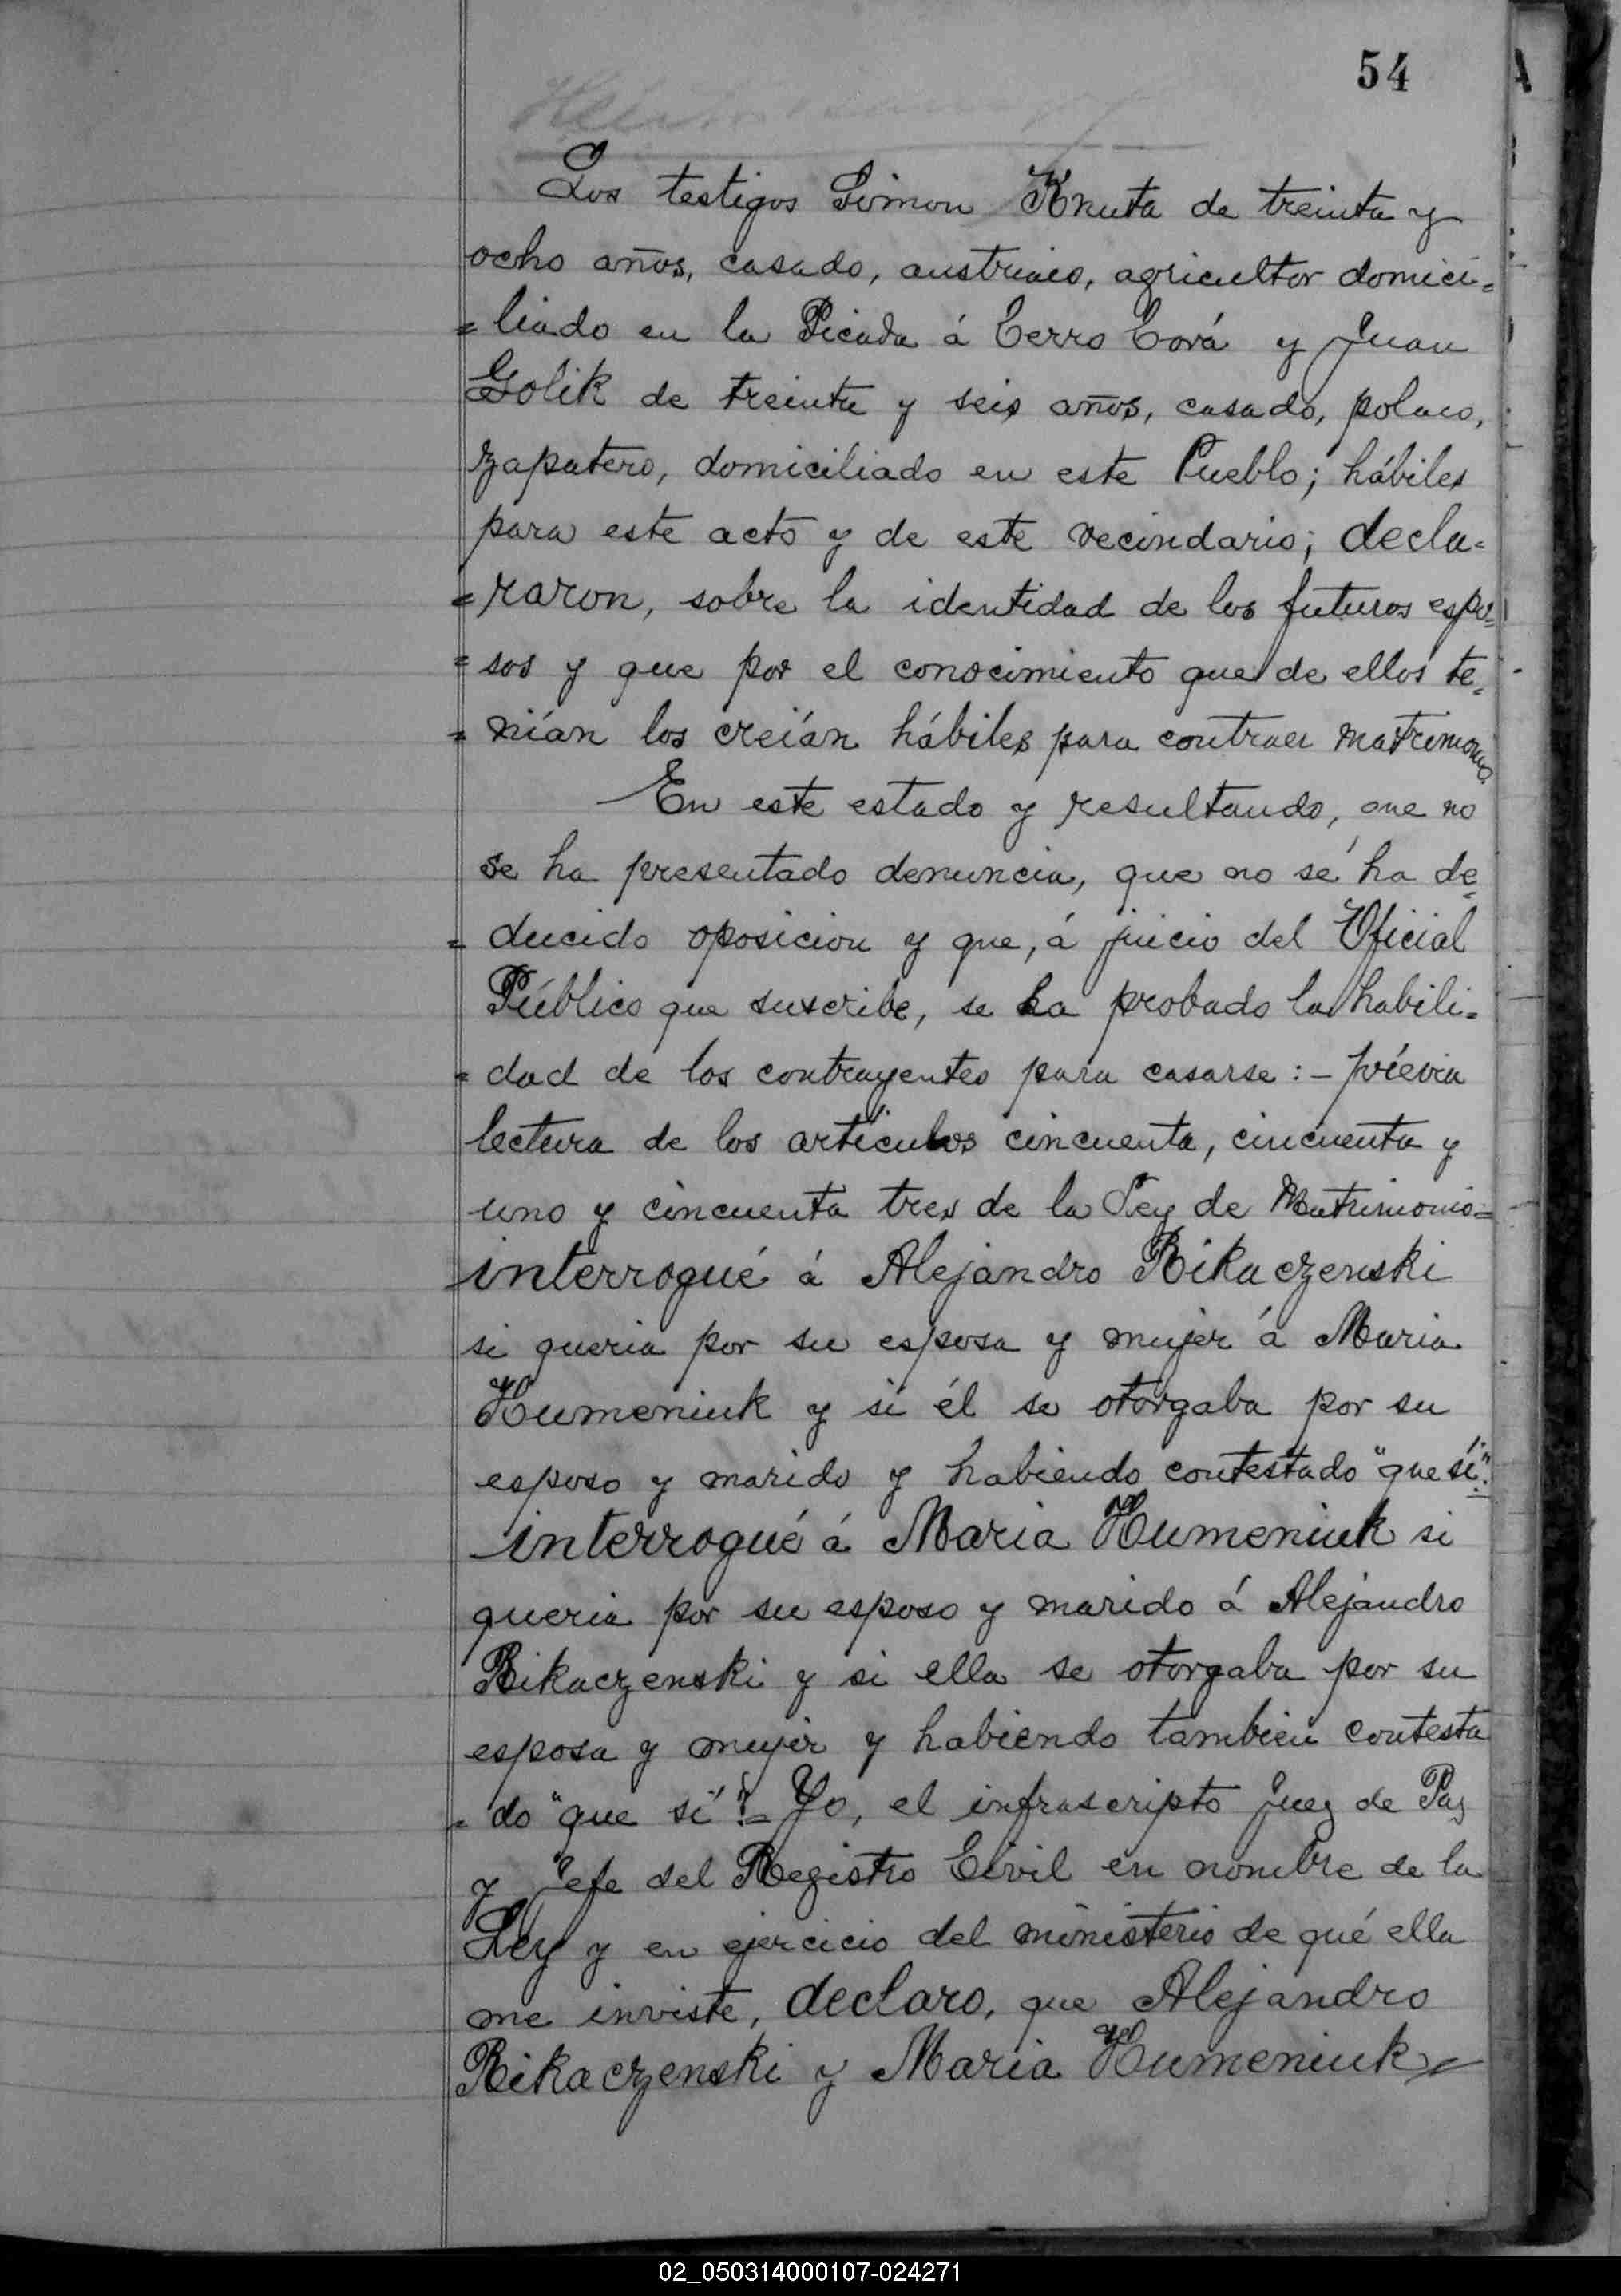 54
Los testigos Simon Knuta de treinta y
ocho años, casado, austriaco, agricultor domici=
=liado en la Picada á Cerro Corá y Juan
Golik de treinta y seis años, casado, polaco,
zapatero, domiciliado en este Pueblo; hábiles
para este acto y de este vecindario; decla=
=raron, sobre la identidad de los futuros espo=
=sos y que por el conocimiento que de ellos te=
=nían los creián hábiles para contraer matrimonio
En este estado y resultando, que no
se ha presentado denuncia, que no sé ha de=
=ducido oposicion y que, á juicio del Oficial
Público que suscribe, se ha probado la habili=
=dad de los contrayentes para casarse:- prévia
lectura de los artículos cincuenta, cincuenta y
uno y cincuenta tres de la Ley de Matrimonio=
interrogué á Alejandro Rikaczenski
si queria por su esposa y mujer á Maria
Humeniuk y si él se otorgaba por su
esposo y marido y habiendo contestado "que sí".
interrogué á Maria Humeniuk si
queria por su esposo y marido á Alejandro
Rikaczenski y si ella se otorgaba por su
esposa y mujer y habiendo tambien contesta
=do "que sí".= Yo, el infrascripto Juez de Paz
y Jefe del Registro Civil en nombre de la
Ley y en ejercicio del ministerio de qué ella
me inviste, declaro, que Alejandro
Rikaczenski y Maria Humeniuk=
02_050314000107-024271